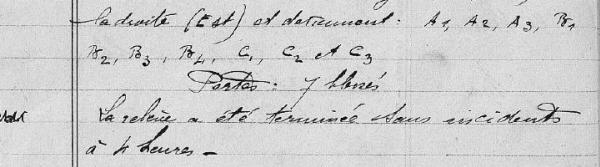 la droite (Est) et détiennent : A1, A2, A3, B1
B2, B3, B4, C1, C2 et C3
Pertes : 7 blessés
La relève a été terminée sans incidents
à 4 heures –